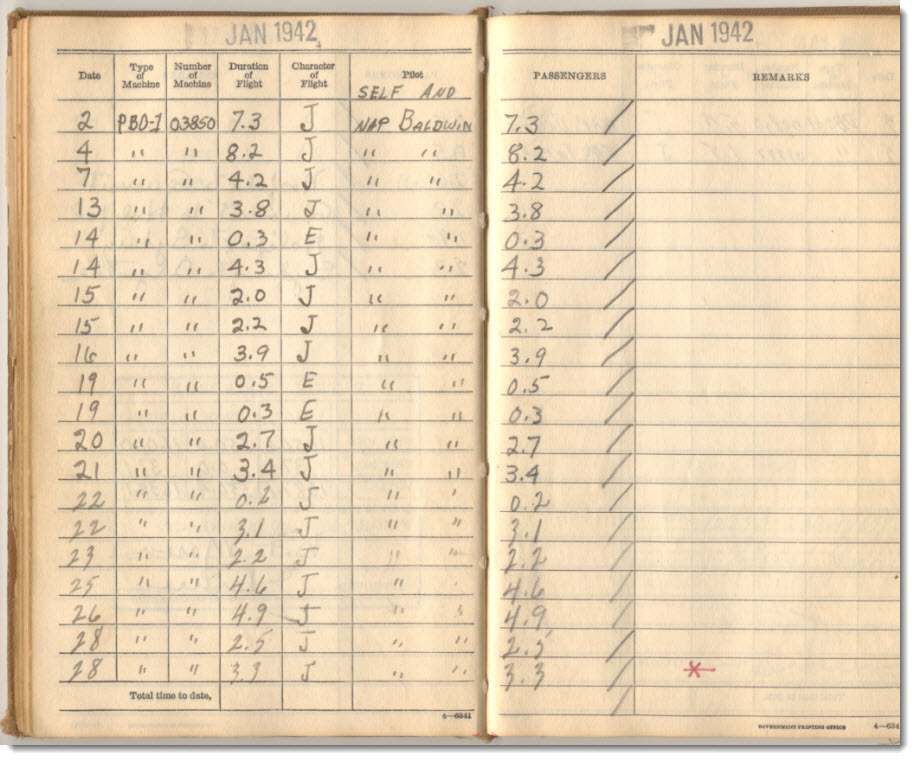 JAN 1942
Date Type of Machine Number of Machine Duration of Flight Character of Flight Pilot
SELF AND
2 PBO-1 03850 7.3 J NAP BALDWIN
4 " " 8.2 J " "
7 " " 4.2 J " "
13 " " 3.8 J " "
14 " " 0.3 E " "
14 " " 4.3 J " "
15 " " 2.0 J " "
15 " " 2.2 J " "
16 " " 3.9 J " "
19 " " 0.5 E " "
19 " " 0.3 E " "
20 " " 2.7 J " "
21 " " 3.4 J " "
22 " " 0.2 J " "
22 " " 3.1 J " "
23 " " 2.2 J " "
25 " " 4.6 J " "
26 " " 4.9 J " "
28 " " 2.5 J " "
28 " " 3.3 J " "
Total time to date,
4—6341
JAN 1942
PASSENGERS REMARKS
7.3 /
8.2 /
4.2 /
3.8 /
0.3 /
4.3 /
2.0 /
2.2 /
3.9 /
0.5 /
0.3 /
2.7 /
3.4 /
0.2 /
3.1 /
2.2 /
4.6 /
4.9 /
2.5 /
3.3 / *
/
GOVERNMENT PRINTING OFFICE 4—634